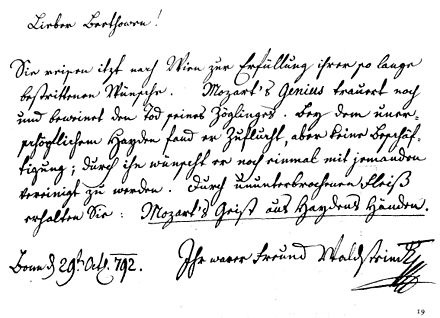 Lieber Beethowen!
Sie reisen itzt nach Wien zur Erfüllung ihrer so lange
bestrittenen Wünsche. Mozart's Genius trauert noch
und beweinet den Tod seines Zöglinges. Bey dem uner-
schöpflichem Hayden fand er Zuflucht, aber keine Beschäf-
tigung; durch ihn wünscht er noch einmal mit jemanden
vereinigt zu werden. Durch ununterbrochenen Fleiß
erhalten Sie: Mozart's Geist aus Haydens Händen.
Bonn d 29t. Oct. 792.
Ihr warer Freund Waldstein
19